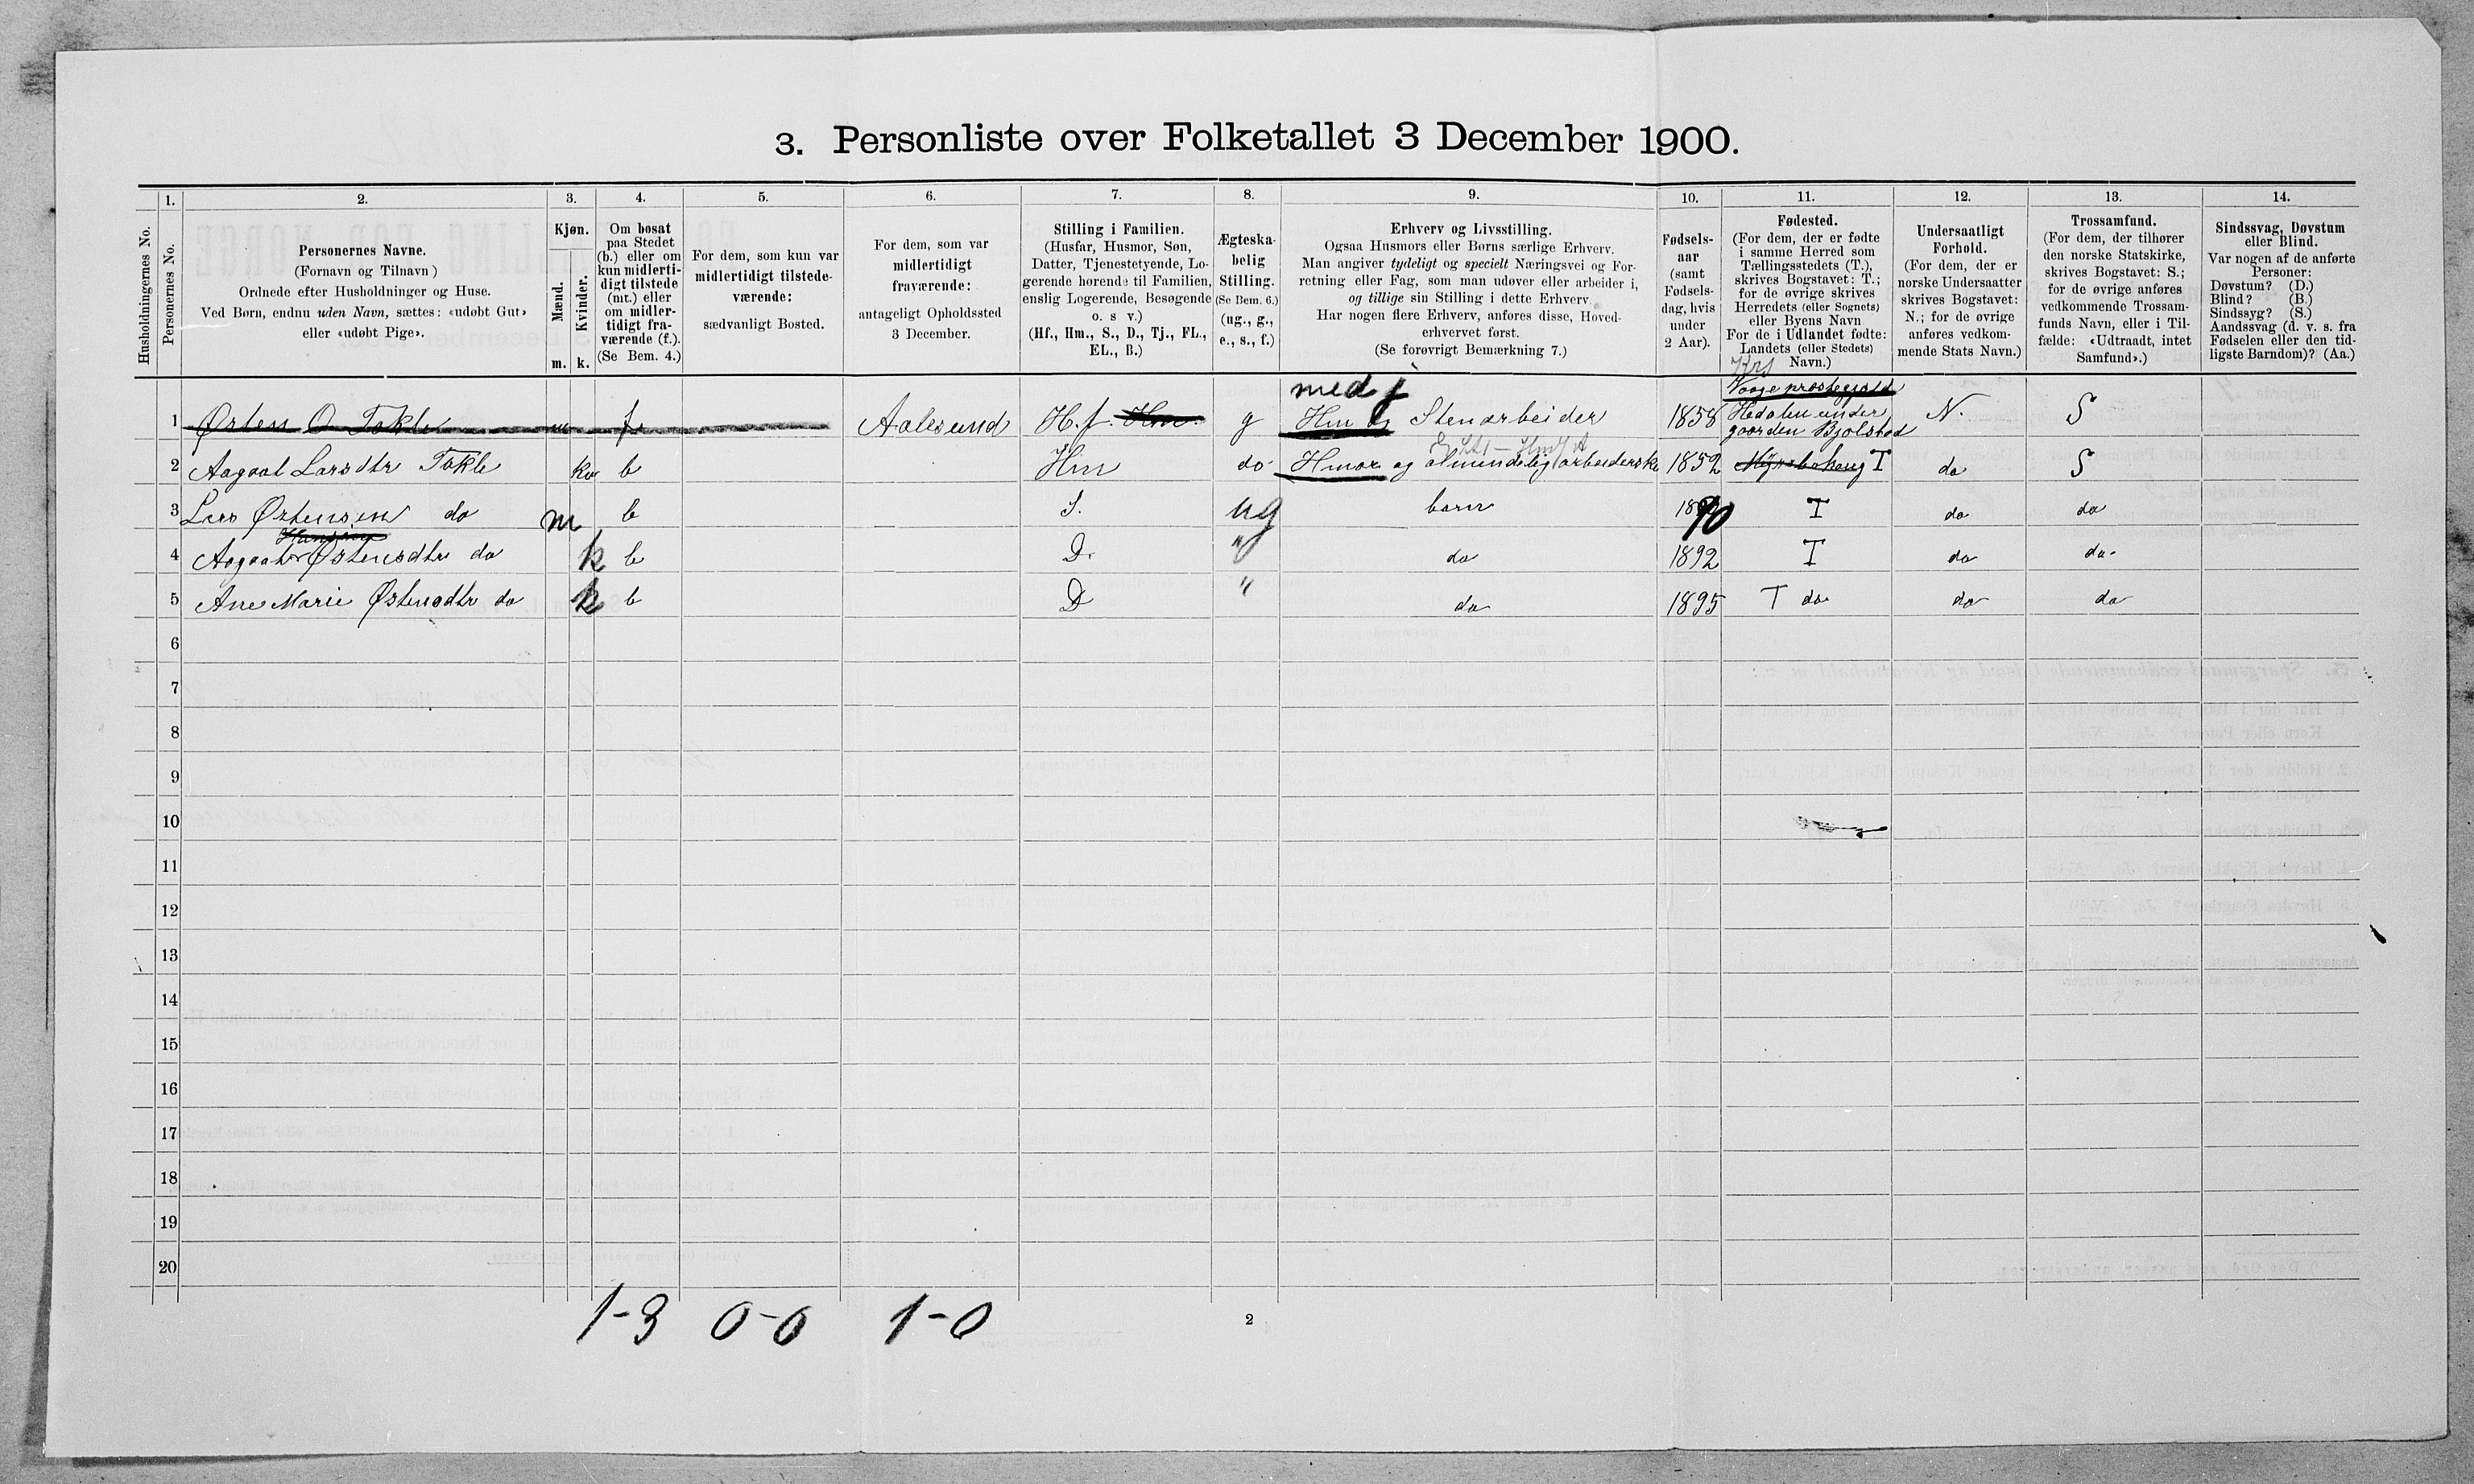 3. Personliste over Folketallet 3 December 1900.
Husholdningernes No.
1.
Personernes No.
2.
Personernes Navne.
(Fornavn og Tilnavn)
Ordnede efter Husholdninger og Huse.
Ved Børn, endnu uden Navn, sættes: «udøbt Gut»
eller «udøbt Pige».
3.
Kjøn.
Mænd.
Kvinder.
m. k.
4.
Om bosat
paa Stedet
(b.) eller om
kun midlerti-
digt tilstede
(mt.) eller
om midler-
tidigt fra-
værende (f.).
(Se Bem. 4.)
5.
For dem, som kun var
midlertidigt tilstede-
værende:
sædvanligt Bosted.
6.
For dem, som var
midlertidigt
fraværende:
antageligt Opholdssted
3 December.
7.
Stilling i Familien.
(Husfar, Husmor, Søn,
Datter, Tjenestetyende, Lo-
gerende hørende til Familien,
enslig Logerende, Besøgende
o. s v.)
(Hf., Hm., S., D., Tj., FL.,
EL., B.)
8.
Ægteska-
belig
Stilling.
(Se Bem. 6.)
(ug., g.,
e., s., f.)
9.
Erhverv og Livsstilling.
Ogsaa Husmors eller Børns særlige Erhverv.
Man angiver tydeligt og specielt Næringsvei og For-
retning eller Fag, som man udøver eller arbeider i,
og tillige sin Stilling i dette Erhverv.
Har nogen flere Erhverv, anføres disse, Hoved-
erhvervet først.
(Se forøvrigt Bemærkning 7.)
10.
Fødsels-
aar
(samt
Fødsels-
dag, hvis
under
2 Aar).
11.
Fødested.
(For dem, der er fødte
i samme Herred som
Tællingsstedets (T.),
skrives Bogstavet: T.;
for de øvrige skrives
Herredets (eller Sognets)
eller Byens Navn
For de i Udlandet fødte:
Landets (eller Stedets)
Navn.)
12.
Undersaatligt
Forhold.
(For dem, der er
norske Undersaatter
skrives Bogstavet:
N.; for de øvrige
anføres vedkom-
mende Stats Navn.)
13.
Trossamfund.
(For dem, der tilhører
den norske Statskirke,
skrives Bogstavet: S.;
for de øvrige anføres
vedkommende Trossam-
funds Navn, eller i Til-
fælde: «Udtraadt, intet
Samfund».)
14.
Sindssvag, Døvstum
eller Blind.
Var nogen af de anførte
Personer:
Døvstum? (D.)
Blind? (B.)
Sindssyg? (S.)
Aandssvag (d. v. s. fra
Fødselen eller den tid-
ligste Barndom)? (Aa.)
1 Østen O Tokle m f. Aalesund H.f. Hm. g Hm og Stenarbeider 1858 Hedalen under N. S
Vaage prostegjæld
gaarden Bjølstad
2 Aagaat Larsdtr Tokle kv b Hm do Hmor og almindelig arbeiderske 1852 T do S
3 Lars Østensen do m b S. ug barn 1890 T do do
Hansen
4 Aagaat Østensdtr do k b D. " do 1892 T do do.
5 Ane Marie Østensdtr do k b D " do 1895 T do. do do
6
7
8
9
10
11
12
13
14
15
16
17
18
19
20
1-3 0-0 1-0
2